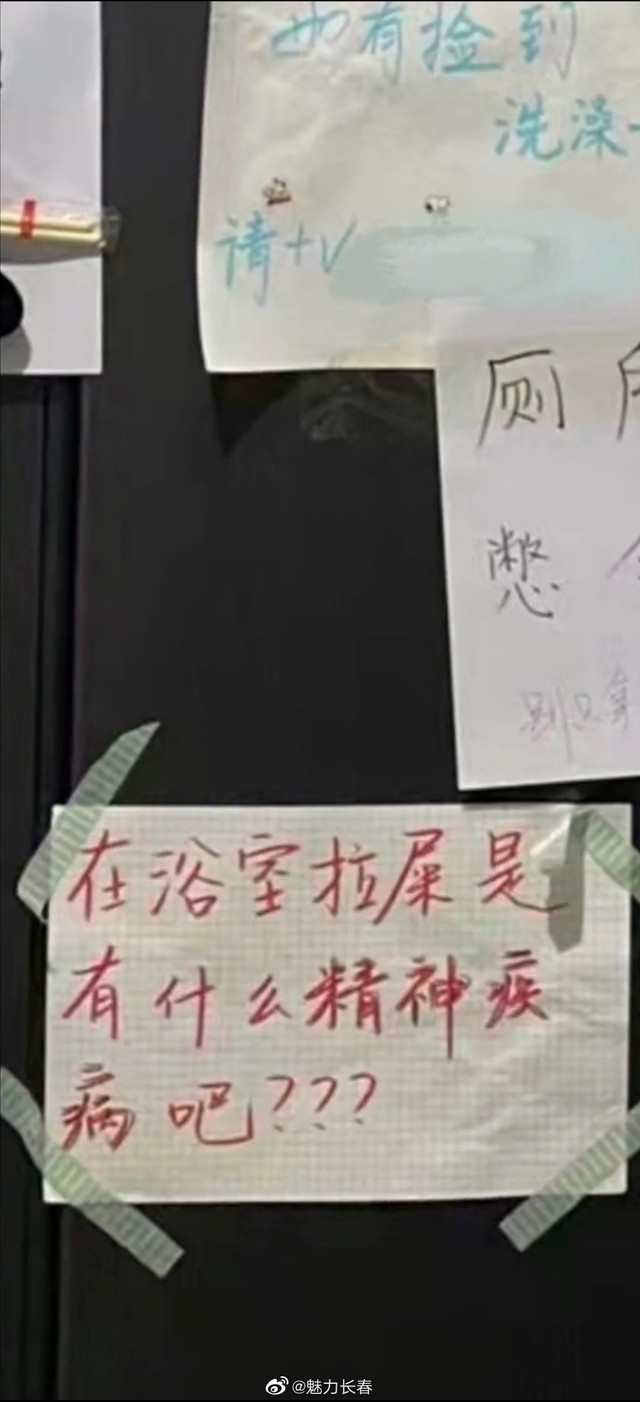 也有捡到
洗澡
请+V
厕
憋
别只拿
在浴室拉屎是
有什么精神疾
病吧???
@魅力长春